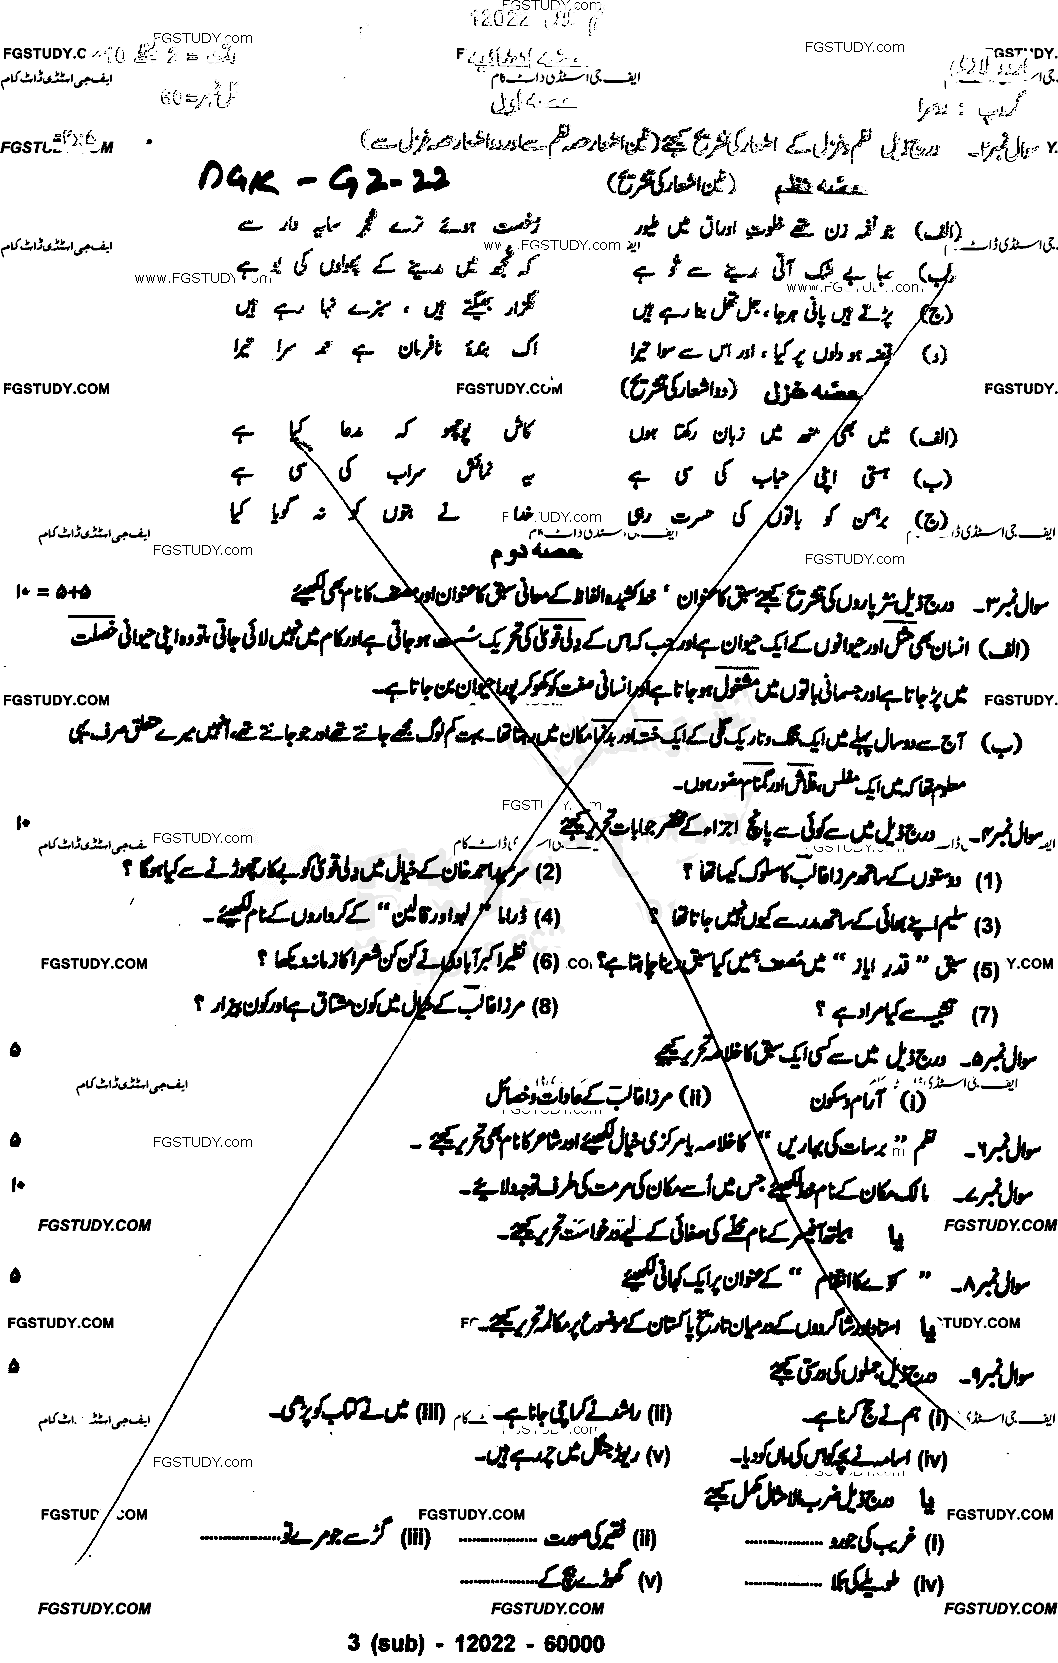 12022
FGSTUDY.com
FGSTUDY.com
ایف جی اسٹڈی ڈاٹ کام
سوال نمبر ۲۔ درج ذیل نظم و غزل کے اشعار کی تشریح کیجئے (تین اشعار حصہ نظم سے اور دو اشعار حصہ غزل سے)
DGK - G2-22
حصہ نظم (تین اشعار کی تشریح)
(الف) جو نغمہ زن تھے خلوتِ اوراق میں طیور رخصت ہوئے ترے شجرِ سایہ دار سے
(ب) صبا بے شک آتی مدینے سے تو ہے کہ تجھ میں مدینے کے پھولوں کی بو ہے
(ج) پڑتے ہیں پانی ہر جا، جل تھل بنا رہے ہیں گلزار بھیگتے ہیں، سبزے نہا رہے ہیں
(د) قبضہ ہو دلوں پر کیا، اور اس سے سوا تیرا اک بندۂ نافرمان ہے حمد سرا تیرا
حصہ غزل (دو اشعار کی تشریح)
(الف) میں بھی منھ میں زبان رکھتا ہوں کاش پوچھو کہ مدعا کیا ہے
(ب) ہستی اپنی حباب کی سی ہے یہ نمائش سراب کی سی ہے
(ج) برہمن کو باتوں کی حسرت رہی خدا نے بتوں کو نہ گویا کیا
حصہ دوم
سوال نمبر ۳۔ درج ذیل نثر پاروں کی تشریح کیجئے سبق کا عنوان، خط کشیدہ الفاظ کے معانی سبق کا عنوان اور مصنف کا نام بھی لکھیئے ۵+۵ = ۱۰
(الف) انسان بھی مثل اور حیوانوں کے ایک حیوان ہے اور جب کہ اس کے دلی قویٰ کی تحریک سست ہو جاتی ہے اور کام میں نہیں لائی جاتی تو وہ اپنی حیوانی خصلت
میں پڑ جاتا ہے اور جسمانی باتوں میں مشغول ہو جاتا ہے اور انسانی صفت کو کھو کر پورا حیوان بن جاتا ہے۔
(ب) آج سے دو سال پہلے میں ایک تنگ و تاریک گلی کے ایک خستہ اور بدنما مکان میں رہتا تھا۔ بہت کم لوگ مجھے جانتے تھے اور جو جانتے تھے، انھیں میرے متعلق صرف یہی
معلوم تھا کہ میں ایک مفلس، قلاش اور گمنام مصور ہوں۔
سوال نمبر ۴۔ درج ذیل میں سے کوئی سے پانچ اجزاء کے مختصر جوابات تحریر کیجئے ۱۰
(1) دوستوں کے ساتھ مرزا غالب کا سلوک کیسا تھا؟ (2) سرسید احمد خان کے خیال میں دلی قویٰ کو بے کار چھوڑنے سے کیا ہوگا؟
(3) سلیم اپنے بھائی کے ساتھ مدرسے کیوں نہیں جاتا تھا؟ (4) ڈراما "لہو اور قالین" کے کرداروں کے نام لکھیئے۔
(5) سبق "قدر ایاز" میں مصنف ہمیں کیا سبق دینا چاہتا ہے؟ (6) نظیر اکبر آبادی نے کن کن شعرا کا زمانہ دیکھا؟
(7) تشبیہ سے کیا مراد ہے؟ (8) مرزا غالب کے خیال میں کون مشتاق ہے اور کون بیزار؟
سوال نمبر ۵۔ درج ذیل میں سے کسی ایک سبق کا خلاصہ تحریر کیجئے ۵
(i) آرام و سکون (ii) مرزا غالب کے عادات و خصائل
سوال نمبر ۶۔ نظم "برسات کی بہاریں" کا خلاصہ یا مرکزی خیال لکھیئے اور شاعر کا نام بھی تحریر کیجئے۔ ۵
سوال نمبر ۷۔ مالک مکان کے نام خط لکھیئے جس میں اُسے مکان کی مرمت کی طرف توجہ دلائیے۔ ۱۰
یا ہیلتھ آفیسر کے نام محلے کی صفائی کے لیے درخواست تحریر کیجئے۔
FGSTUDY.COM
سوال نمبر ۸۔ "کا انجام" کے عنوان پر ایک کہانی لکھیئے ۵
یا استاد اور شاگردوں کے درمیان تاریخ پاکستان کے موضوع پر مکالمہ تحریر کیجئے۔
سوال نمبر ۹۔ درج ذیل جملوں کی درستی کیجئے ۵
(i) ہم نے حج کرنا ہے۔ (ii) راشد نے کراچی جانا ہے۔ (iii) میں نے کتاب کو پڑھی۔
(iv) اسامہ نے بچہ کو اس کی ماں کو دیا۔ (v) ریوڑ جنگل میں چر رہے ہیں۔
یا درج ذیل ضرب الامثال مکمل کیجئے
(i) غریب کی جورو ............ (ii) فقیر کی صورت ............ (iii) گڑ سے جو مرے تو ............
(iv) طویلے کی بلا ............ (v) گھوڑے بیچ کے ............
FGSTUDY.COM FGSTUDY.COM FGSTUDY.COM
3 (sub) - 12022 - 60000